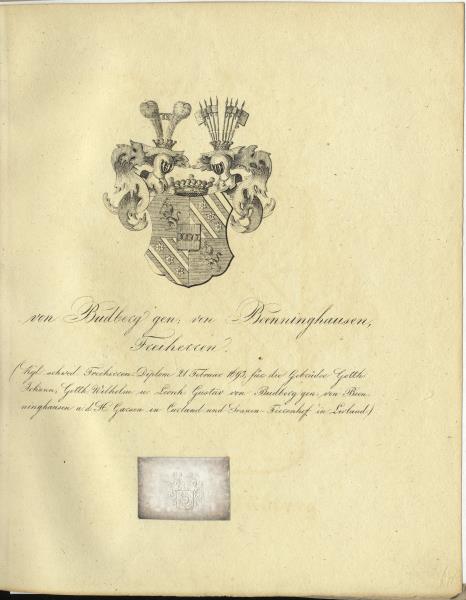 von Budberg gen: von Bönninghausen,
Freiherren.
(Kgl. schwed. Freiherren-Diplom 21 Februar 1693, für die Gebrüder Gotth:
Johann, Gotth. Wilhelm u: Leonh: Gustav von Budberg gen: von Bön-
ninghausen a. d. H. Garsen in Curland und Sennen-Fianenhof in Livland.)